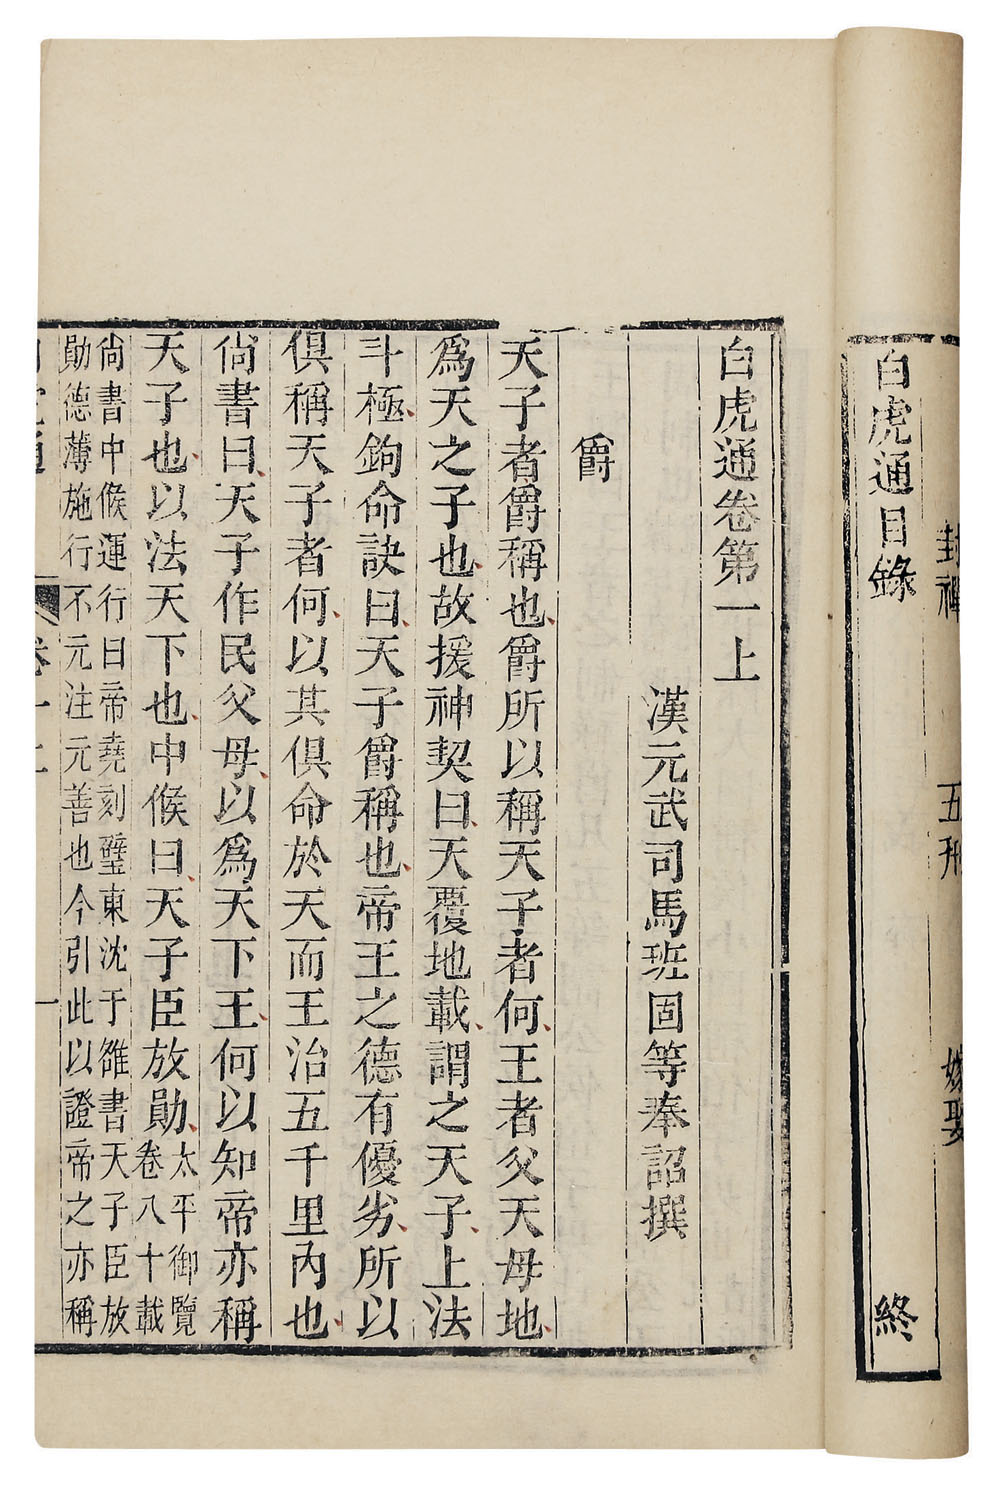 封禪
五刑
嫁娶
白虎通目錄
終
白虎通卷第一上
漢元武司馬班固等奉詔撰
爵
天子者爵稱也爵所以稱天子者何王者父天母地
爲天之子也故援神契曰天覆地載謂之天子上法
斗極鉤命訣曰天子爵稱也帝王之德有優劣所以
俱稱天子者何以其俱命於天而王治五千里內也
尚書曰天子作民父母以爲天下王何以知帝亦稱
天子也以法天下也中候曰天子臣放勛
太平御覽
卷八十載
尚書中候運行曰帝堯刻璧東沈于雒書天子臣放
勛德薄施行不元注元善也今引此以證帝之亦稱
卷一上
一